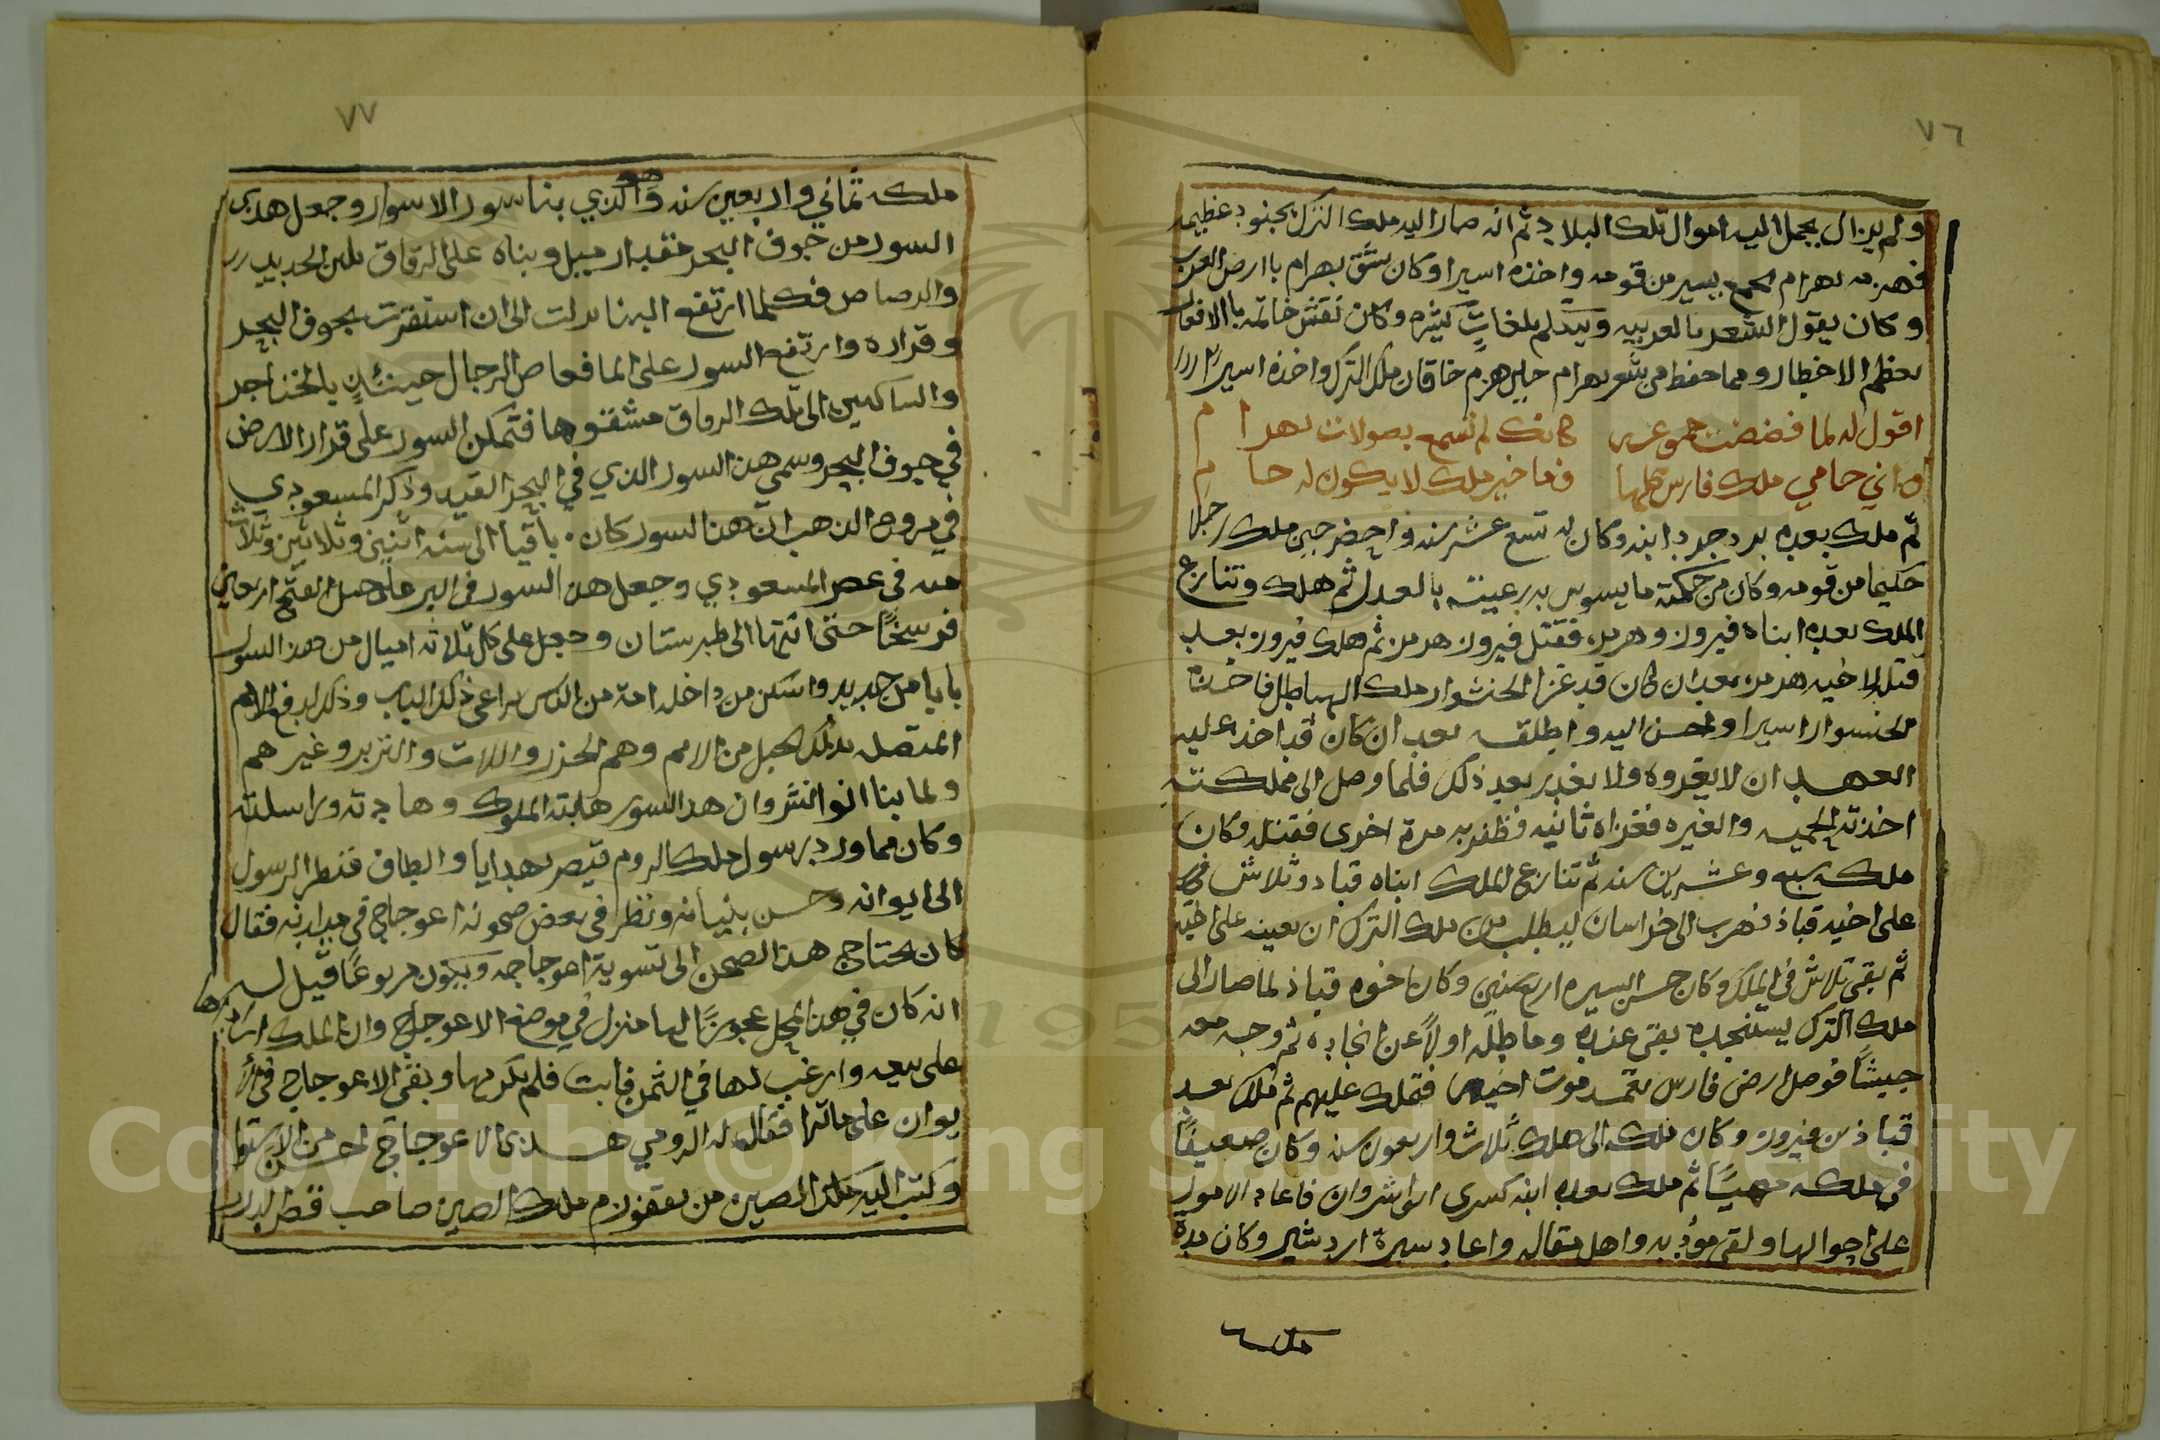 ٧٦
ولم يزال يحمل اليه اموال تلك البلاد ثم انه صار اليه ملك الترك بجنود عظيمه
فهزمه بهرام بجمع يسير من قومه واخذه اسيرا وكان نشق بهرام باارض العرب
وكان يقول الشعر بالعربيه ويتكلم بلغات كثيره وكان نقش خاتمه باالافعال
تعظم الاخطار ومما حفظ من شعر بهرام حين هزم خاقان ملك الترك واخذه اسيرا
اقول له لما فضضت جموعه كانك لم تسمع بصولات بهرام
واني حامي ملك فارس كلها وما خير ملك لا يكون له حام
ثم ملك بعده يزدجرد ابنه وكان له تسع عشر سنه واحضر حين ملك رجلا
حكيما من قومه وكان من حكمته ما يسوس به رعيته بالعدل ثم هلك وتنازع
الملك بعده ابناه فيروز وهرمز فقتل فيروز هرمز ثم هلك فيروز بعد
قتله لاخيه هرمز بعد ان كان قد غزا الخنشوار ملك الهياطل فاخذه
الخنسوار اسيرا واحسن اليه واطلقه بعد ان كان قد اخذ عليه
العهد ان لا يغزوه ولا يغدر بعد ذلك فلما وصل الى مملكته
اخذته الحميه والغيره فغزاه ثانيه فظفر به مرة اخرى فقتله وكان
ملكه سبعه وعشرين سنه ثم تنازع الملك ابناه قباد وثلاش
على اخيه قباذ فهرب الى خراسان ليطلب من ملك الترك ان يعينه على اخيه
ثم بقى ثلاش في الملك وكان حسن السيره اربع سنين وكان اخوه قباذ لما صار الى
ملك الترك يستنجده بقى عنده وماطله اولا عن انجاده ثم وجه معه
جيشا فوصل ارض فارس بعد موت اخيه فملك عليهم ثم ملك بعد
قباذ بن فيروز وكان ملكه الى هلك ثلاث واربعون سنه وكان ضعيفا
في ملكه مهينا ثم ملك بعده ابنه كسرى انوا شروان فاعاد الامور
على احوالها ولقى موذبه واهل مقاله واعاد سيرة اردشير وكان مدة
ملكه
٧٧
ملكه ثماني واربعين سنه وهو الذي بنا سور الاسوار وجعل هذا
السور من جوف البحر مقدار ميل وبناه على الزقاق بلبن الحديد
والرصاص فكلما ارتفع البنا نزلت الى ان استقرت بجوف البحر
وقراره وارتفع السور على الما فغاص الرجال حينئذٍ بالخناجر
والساكين الى تلك الزقاق فشقوها فتمكن السور على قرار الارض
في جوف البحر وسمي هذا السور الذي في البحر القيد وذكر المسعودي
في مروج الذهب ان هذا السور كان باقيا الى سنه اثنين وثلاثين وثلاث
منه في عصر المسعودي وجعل هذا السور في البر على جبل الفتح اربعين
فرسخًا حتى انتها الى طبرستان وجعل على كل ثلاثه اميال من هذا السور
بابا من حديد واسكن من داخله امة من الناس يراعي ذلك الباب وذلك لدفع الامم
المتصله بذلك الجبل من الامم وهم الخزر واللات والتربر وغيرهم
ولما بنا انوا نشروان هذا السور هابته الملوك وهادته وراسلته
وكان مما ورد رسول ملك الروم قيصر بهدايا والطاف فنظر الرسول
الى ايوانه وحسن بنيانه ونظر في بعض صحونه اعوجاج في ميدانه فقال
كان يحتاج هذا الصحن الى تسوية اعوجاجه ويكون مربوعًا فقيل له
انه كان في هذا المحل عجوزًا لها منزل في موضع الاعوجاج وان الملك ارادها
على بيعه وارغب لها في الثمن فابت فلم يكرهها وبقى الاعوجاج في الا
يوان على حاله فقال له الرومي هذا الاعوجاج احسن من الاستوا
وكتب اليه ملك الصين من يعفورم ملك الصين صاحب قصر الدر